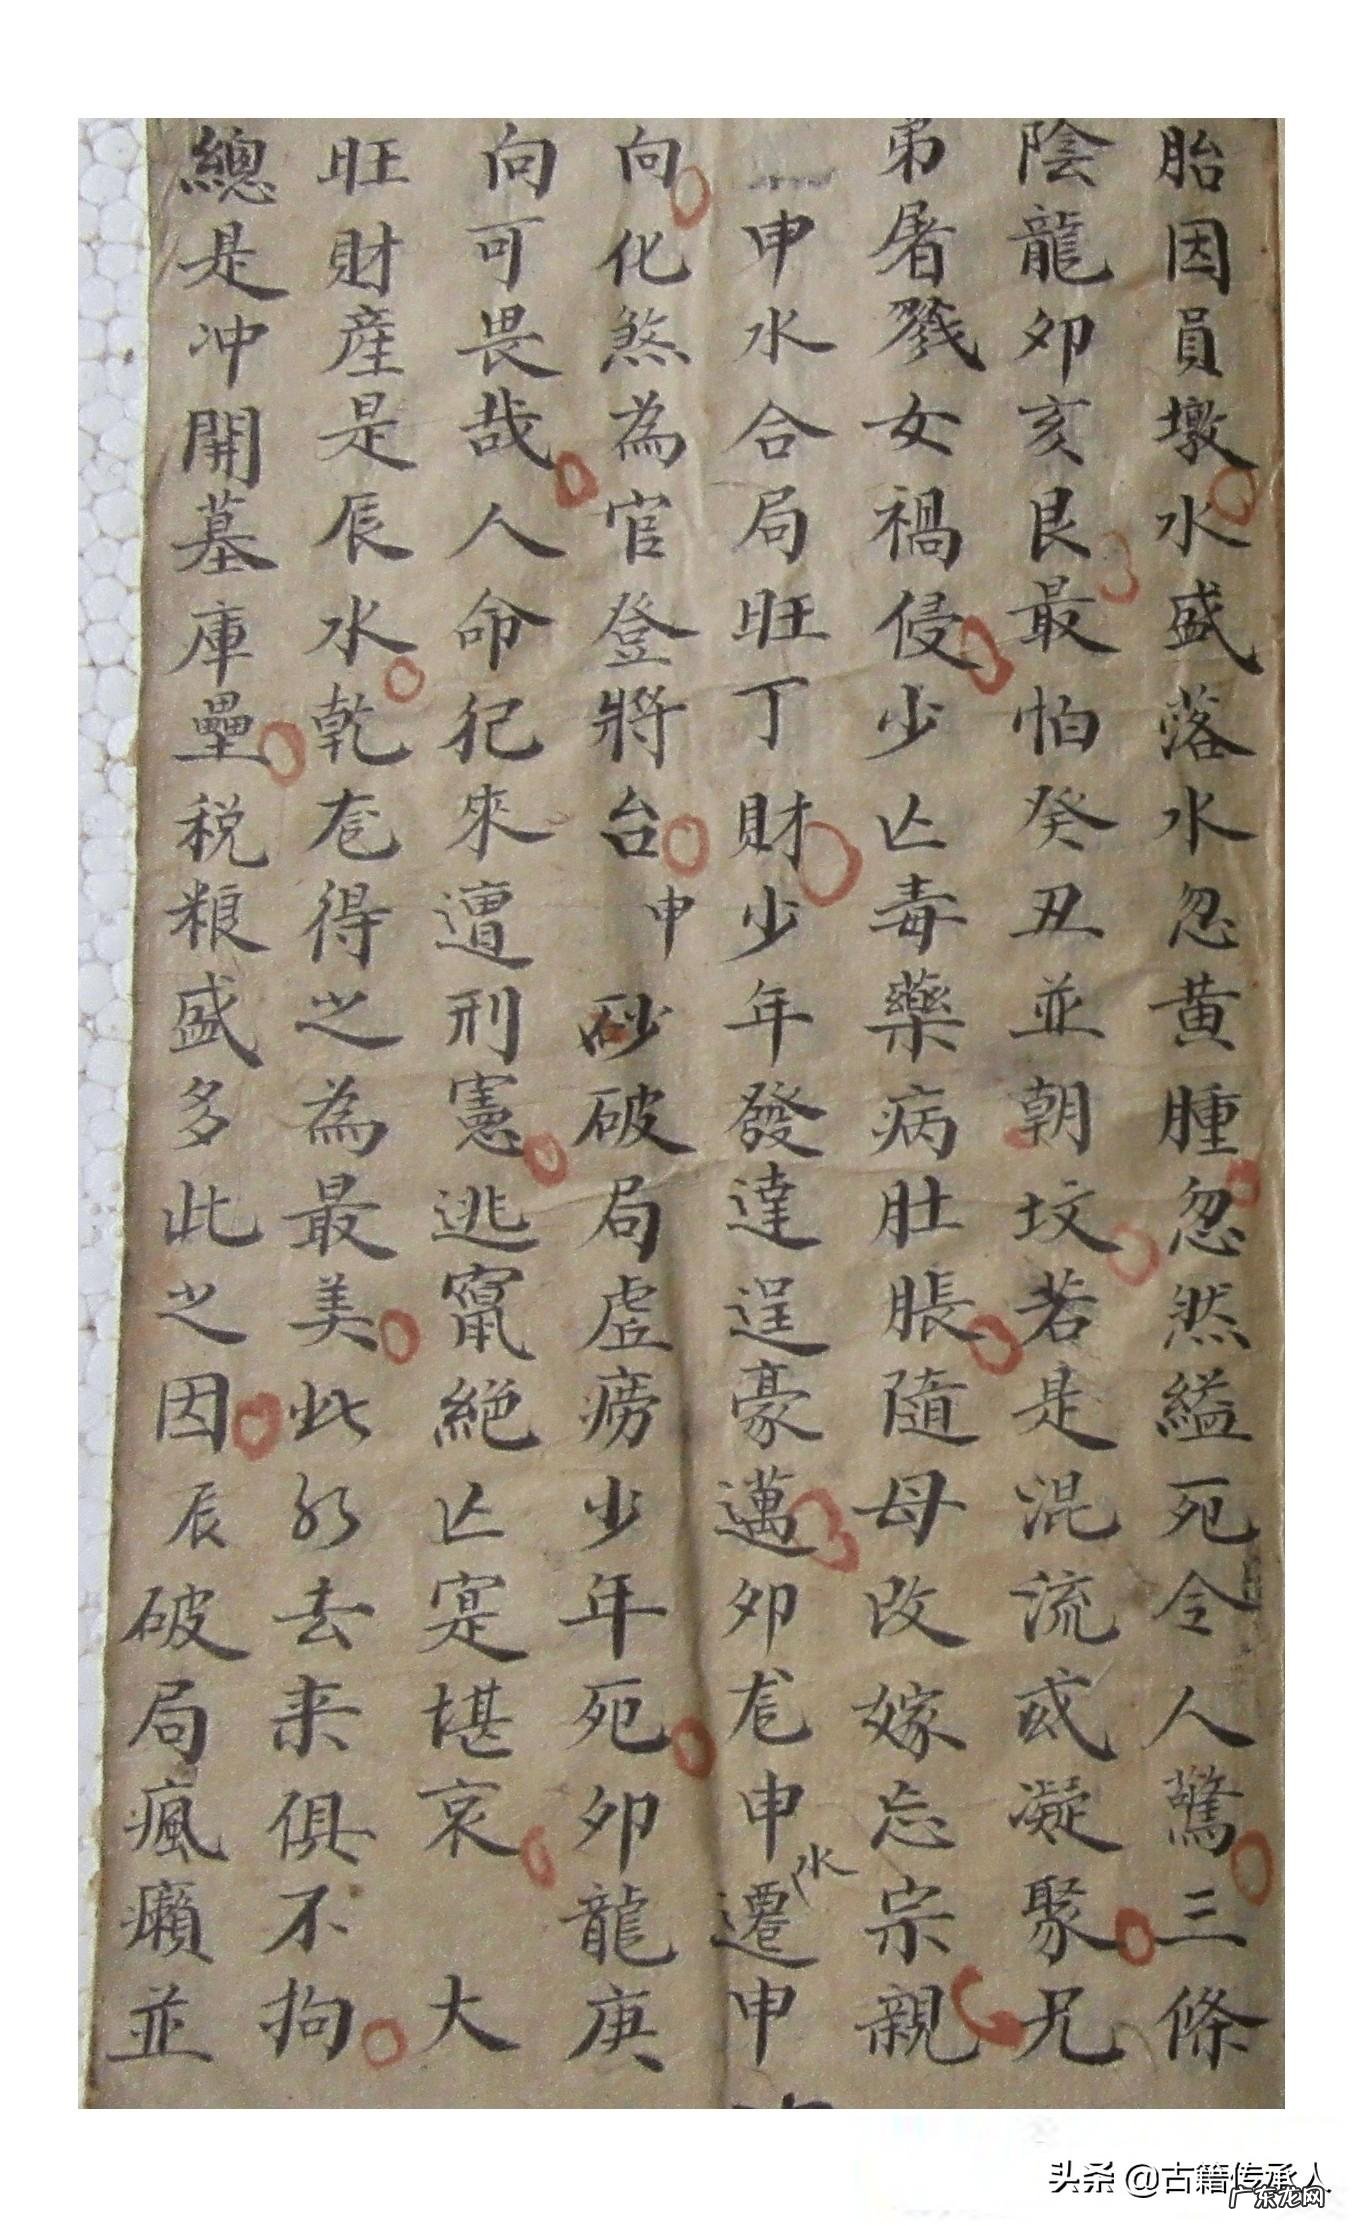 胎因員墩水盛落水忽黃腫忽然縊死令人驚三條
陰龍夘亥艮最怕癸丑並朝坟若是混流或凝聚兄
弟屠戮女禍侵少亾毒藥病肚脹隨母改嫁忘宗親
申水合局旺丁財少年發達逞豪邁夘尨申水遷申
向化煞為官登將台申砂破局虛癆少年死夘龍庚
向可畏哉人命犯來遭刑憲逃竄絕亾寔堪哀大
旺財產是辰水乾尨得之為最美此水去来俱不拘
總是冲開墓庫壘税粮盛多此之因辰破局瘋癩並
头条 @古籍传承人
广东龙网